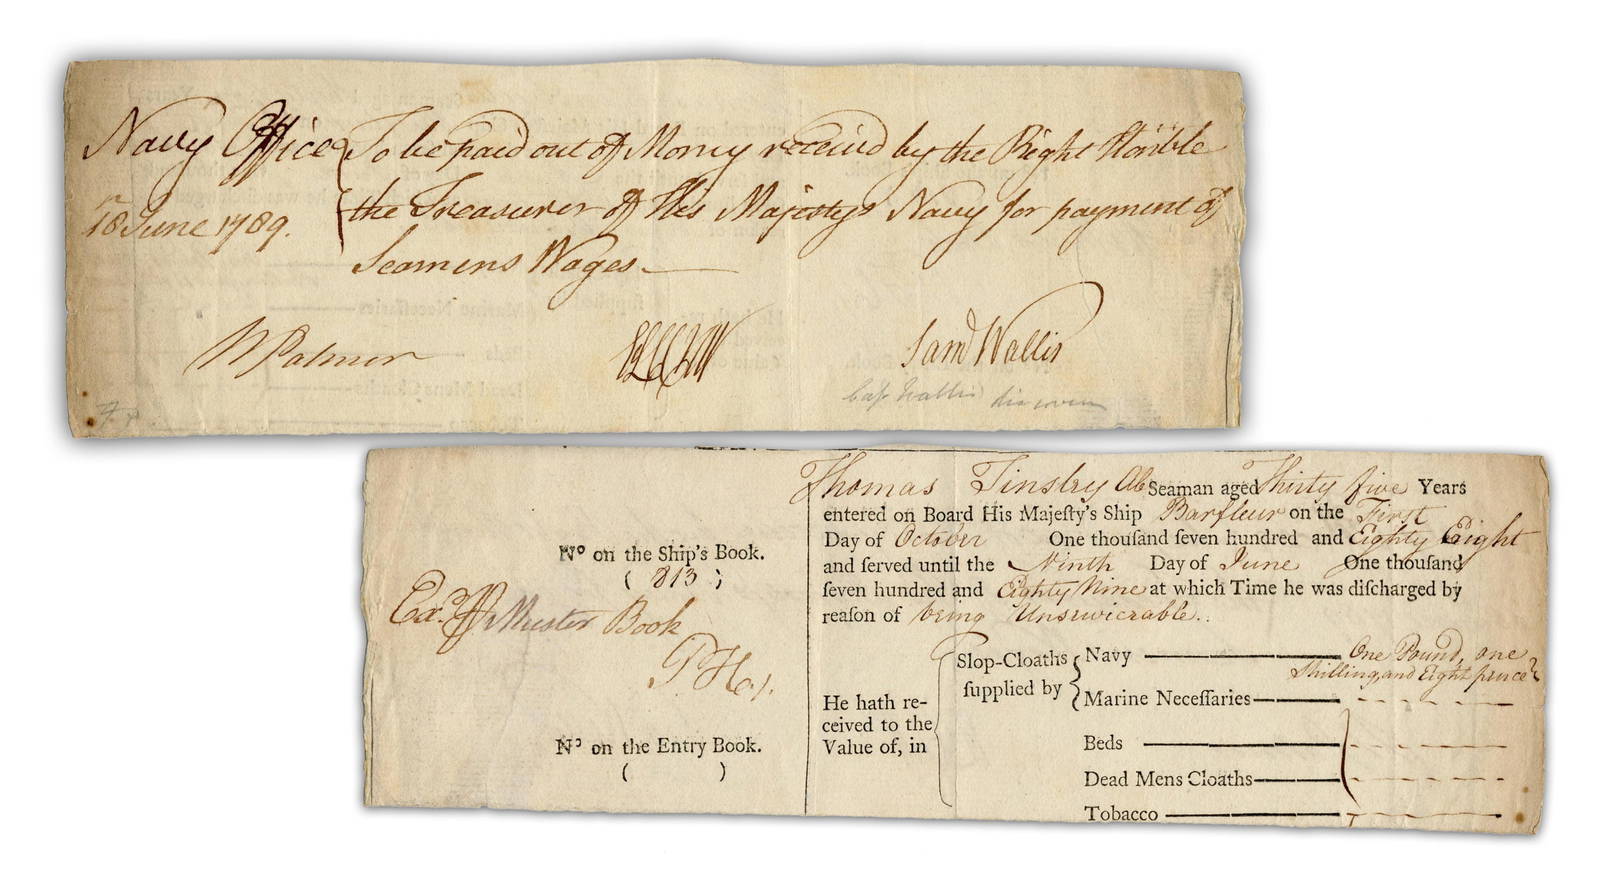 Navy Office To be paid out of Money received by the Right Honble
18 June 1789. the Treasurer of His Majestys Navy for payment of
Seamens Wages.
Palmer
Sam Wallis
Cap Wallis
Thomas Tinsley Ab Seaman aged Thirty five Years
entered on Board His Majeſty's Ship Barfleur on the First
Day of October One thouſand ſeven hundred and Eighty Eight
and ſerved until the Ninth Day of June One thouſand
ſeven hundred and Eighty Nine at which Time he was diſcharged by
reaſon of being Unserviceable.
Nº on the Ship's Book.
( 813 )
Exd Muster Book
Nº on the Entry Book.
( )
He hath re-
ceived to the
Value of, in
Slop-Cloaths
ſupplied by
Navy One Pound, one
Shilling, and Eight pence
Marine Neceſſaries
Beds
Dead Mens Cloaths
Tobacco